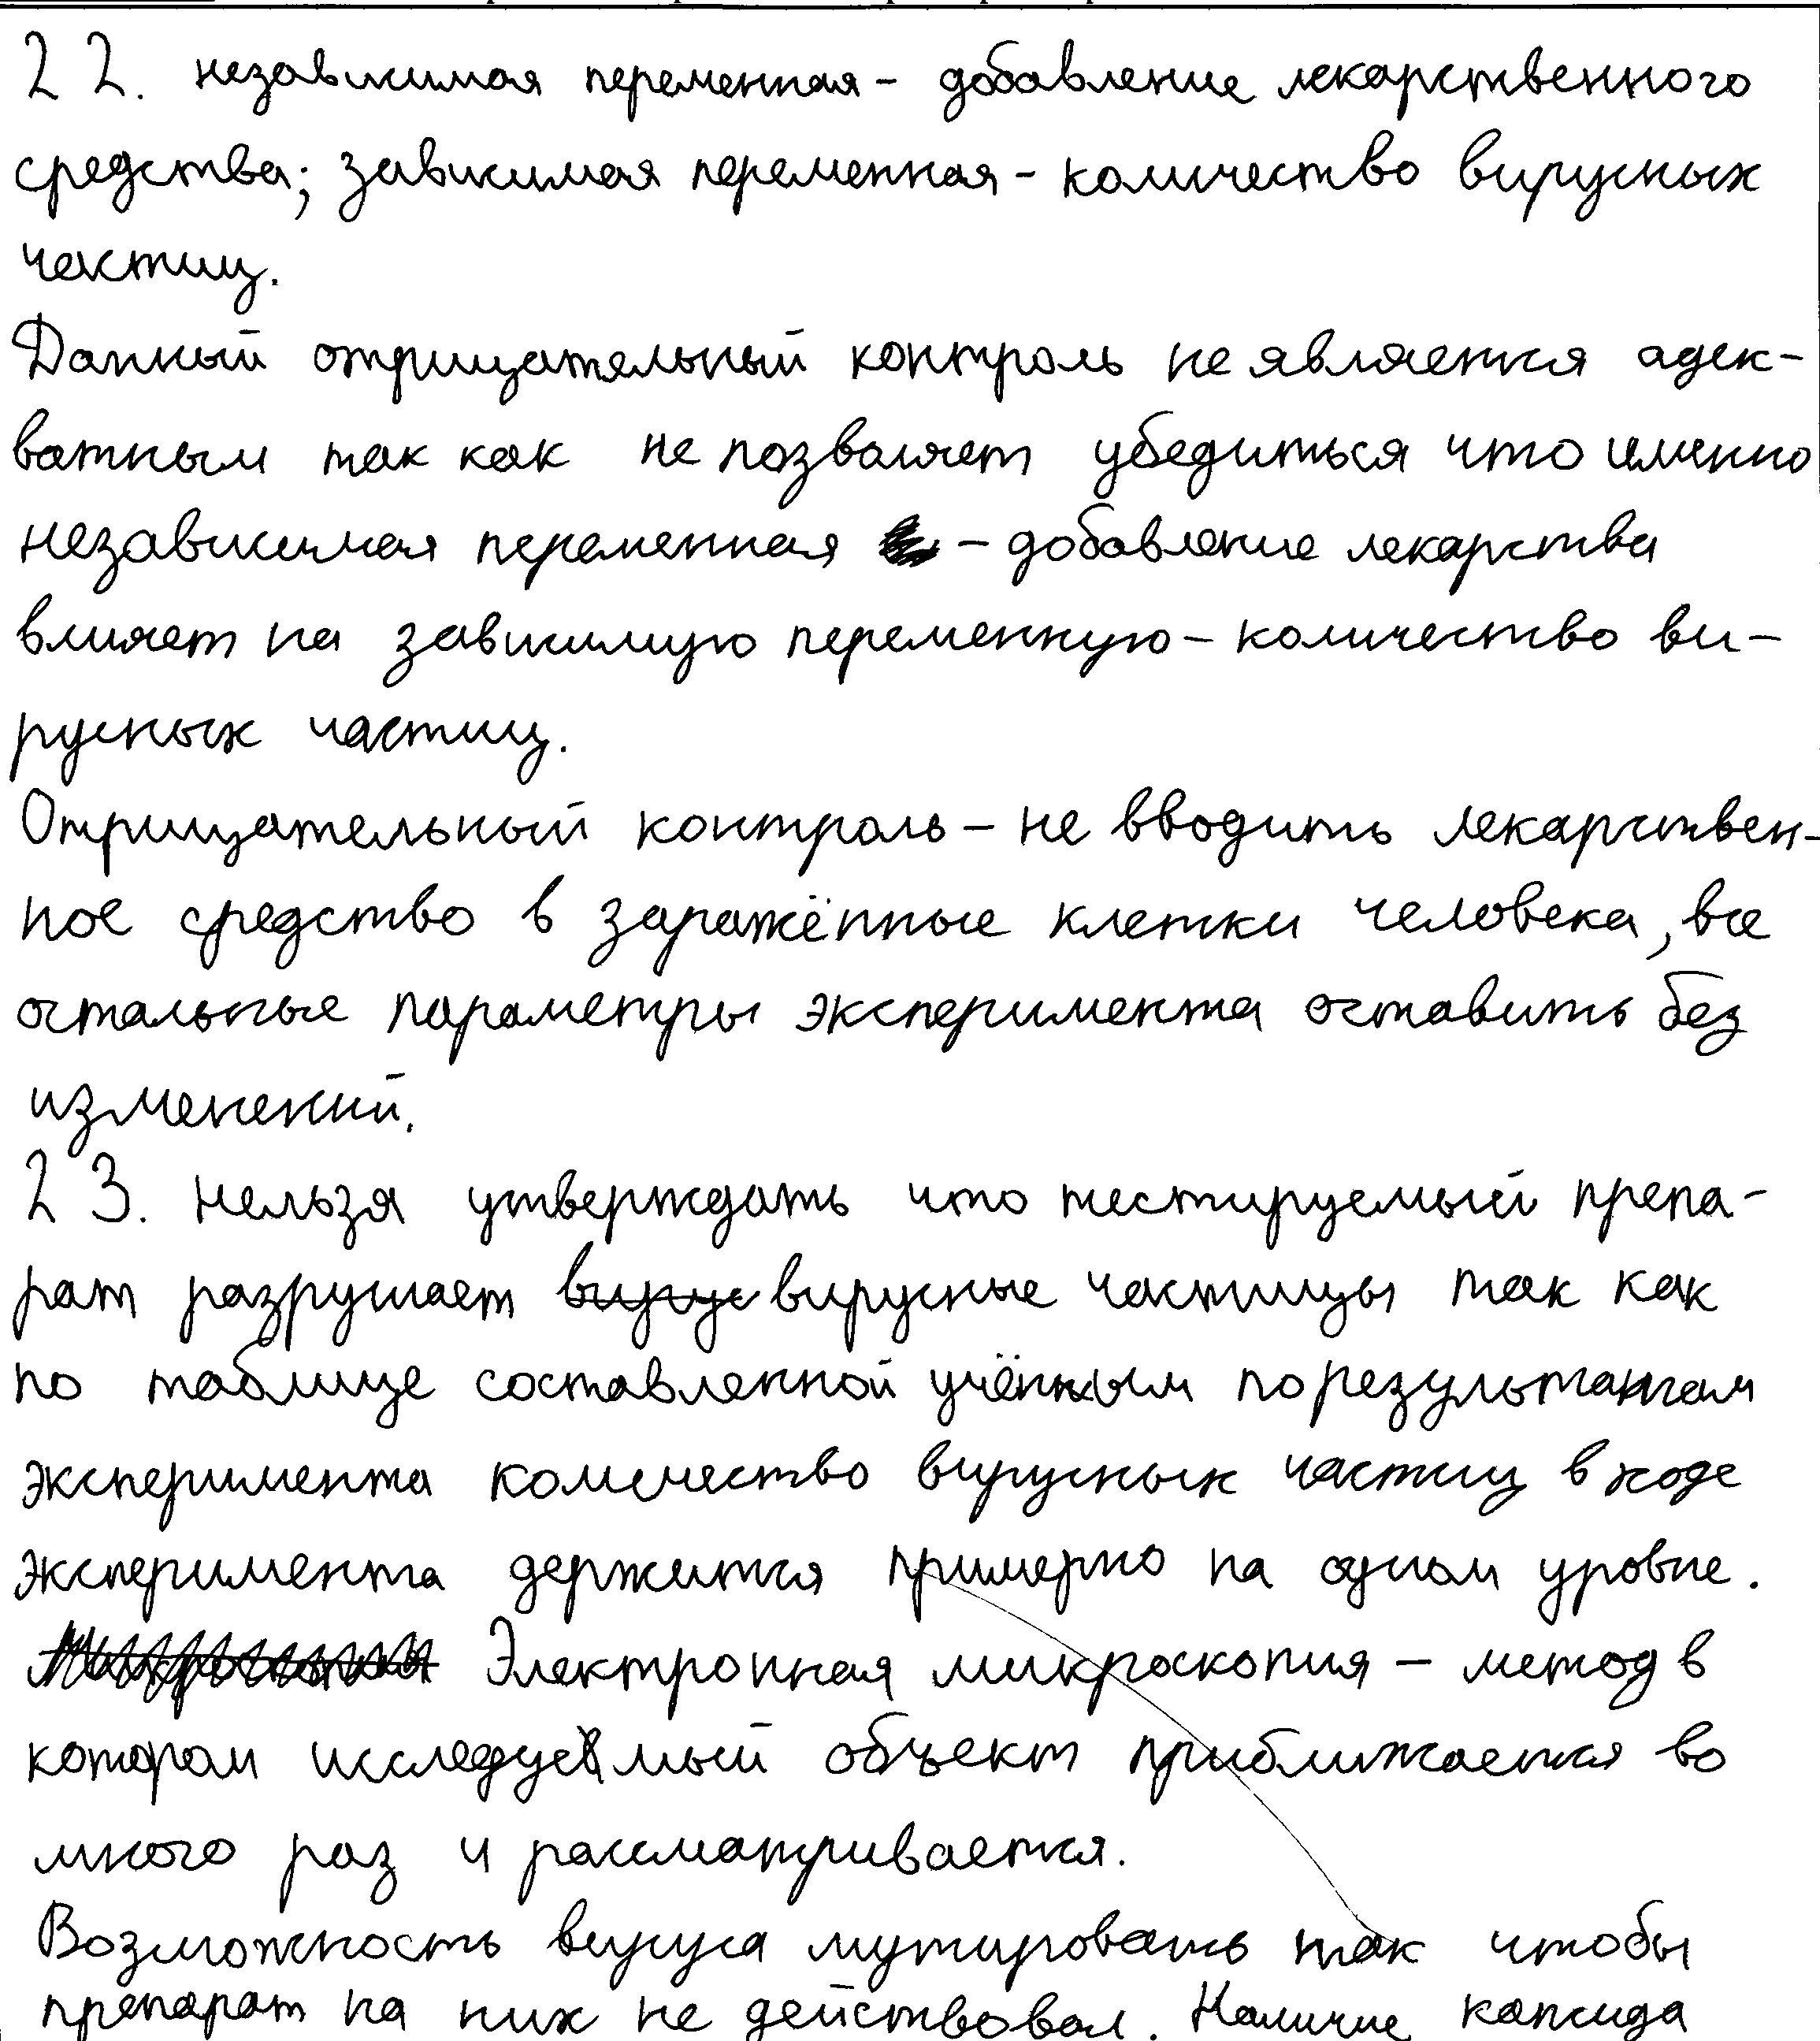 22. независимая переменная - добавление лекарственного
средства; зависимая переменная - количество вирусных
частиц.
Данный отрицательный контроль не является адек-
ватным так как не позволяет убедиться что именно
независимая переменная - добавление лекарства
влияет на зависимую переменную - количество ви-
русных частиц.
Отрицательный контроль - не вводить лекарствен-
ное средство в заражённые клетки человека, все
остальные параметры эксперимента оставить без
изменений.
23. нельзя утверждать что тестируемый препа-
рат разрушает вирусные частицы так как
по таблице составленной учёным по результатам
эксперимента количество вирусных частиц в ходе
эксперимента держится примерно на одном уровне.
Электронная микроскопия - метод в
котором исследуемый объект приближается во
много раз и рассматривается.
Возможность вируса мутировать так чтобы
препарат на них не действовал. Наличие капсида